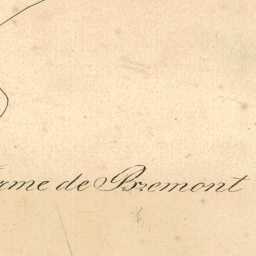 rme de Bremont